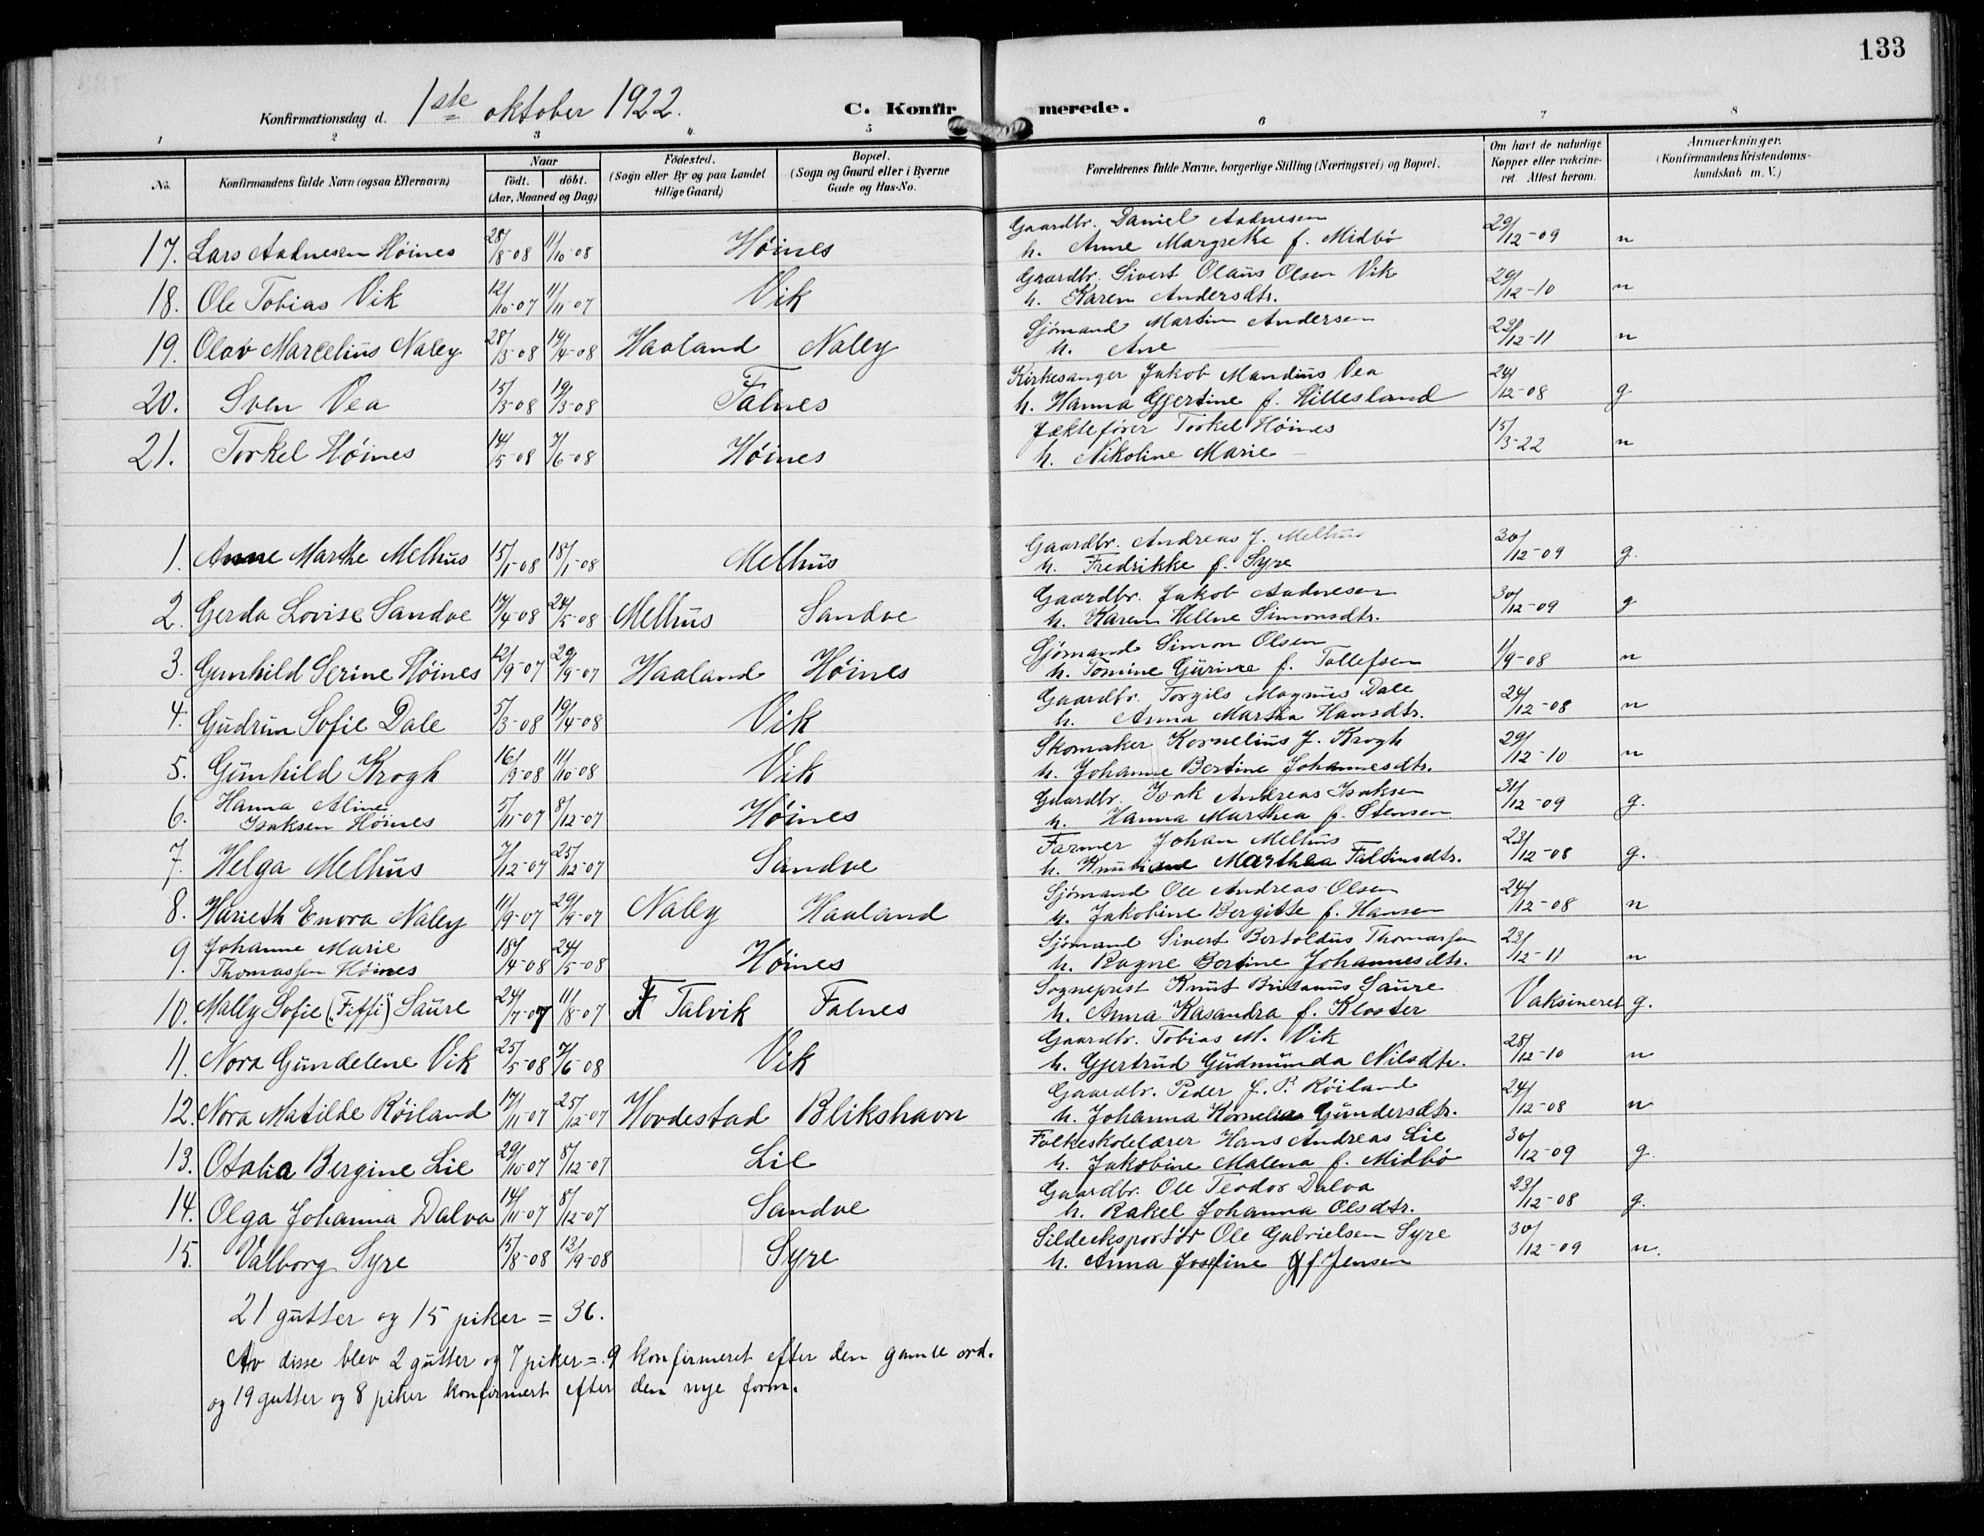 133
Konfirmationsdag d. 1ste oktober 1922. C. Konfirmerede.
1 2 3 4 5 6 7 8
No. Konfirmandens fulde Navn (ogsaa Efternavn) Naar født. døbt. (Aar, Maaned og Dag) Fødested. (Sogn eller By og paa Landet tillige Gaard) Bopæl. (Sogn og Gaard eller i Byerne Gade og Hus-No. Forældrenes fulde Navne, borgerlige Stilling (Næringsvei) og Bopæl. Om havt de naturlige Kopper eller vakcineret Attest herom. Anmærkninger. (Konfirmandens Kristendomskundskab m. V.)
17. Lars Aadnesen Høines 28/8-08 11/10-08 Høines Gaardbr. Daniel Aadnesen 29/12-09 n
h. Anne Margrethe f. Midbø
18. Ole Tobias Vik 12/10-07 11/11-07 Vik Gaardbr. Sivert Olaus Olsen Vik 29/12-10 n
h. Karen Andersdtr.
19. Olav Marcelius Naley 28/3-08 19/4-08 Haaland Naley Sjømand Martin Andersen 23/12-11 n
h. Ane
20. Sven Vea 15/3-08 19/3-08 Falnes Kirkesanger Jakob Mandius Vea 24/12-08 g
h. Hanna Gjertine f. Hillesland
21. Torkel Høines 14/5-08 7/6-08 Høines Jæktefører Torkel Høines 15/3-22 n
h. Nikoline Marie
1. Anne Marthe Melhus 15/1-08 18/1-08 Melhus Gaardbr. Andreas J. Melhus 30/12-09 g.
h. Fredrikke f. Syre
2. Gerda Lovise Sandve 17/4-08 24/5-08 Melhus Sandve Gaardbr. Jakob Aadnesen 30/12-09 g
h. Karen Hellne Simonsdtr.
3. Gunhild Serine Høines 12/9-07 29/9-07 Haaland Høines Sjømand Simon Olsen 1/9-08 n
h. Tomine Gurine f. Tollefsen
4. Gudrun Sofie Dale 5/3-08 19/4-08 Vik Gaardbr. Torgils Magnus Dale 24/12-08 n
h. Anna Martha Hansdtr.
5. Gunhild Krogh 16/9-08 11/10-08 Vik Skomaker Kornelius J. Krogh 29/12-10 n
h. Johanne Bertine Johannesdtr.
6. Hanna Aline Isaksen Høines 5/11-07 8/12-07 Høines Gaardbr. Isak Andreas Isaksen 31/12-09 g.
h. Hanna Marthea f. Stensen
7. Helga Melhus 7/12-07 25/12-07 Sandve Farmer Johan Melhus 23/12-08 g.
h. Knutiane Marthea Faltinsdtr.
8. Harieth Enora Naley 11/9-07 29/9-07 Naley Haaland Sjømand Ole Andreas Olsen 24/12-08 n
h. Jakobine Bergitte f. Hansen
9. Johanne Marie Thomassen Høines 18/4-08 24/5-08 Høines Sjømand Sivert Bertoldus Thomassen 23/12-11 n
h. Ragne Bertine Johannesdtr.
10. Mally Sofie ("Fiffi") Saure 24/7-07 11/8-07 Talvik Falnes Sogneprest Knut Saure Vaksineret g.
h. Anna Kasandra f. Kloster
11. Nora Gundelene Vik 25/5-08 7/6-08 Vik Gaardbr. Tobias M. Vik 28/12-10 n
h. Gjertrud Gudmunda Nilsdtr.
12. Nora Matilde Røiland 17/11-07 25/12-07 Hovdestad Blikshavn Gaardbr. Peder J. P. Røiland 24/12-08 n
h. Johanna Kornelia Gundersdtr.
13. Otalia Bergine Lie 29/10-07 8/12-07 Lie Folkeskolelærer Hans Andreas Lie 30/12-09 g.
h. Jakobine Malena f. Midbø
14. Olga Johanna Dalva 14/11-07 8/12-07 Sandve Gaardbr. Ole Teodor Dalva 23/12-08 g.
h. Rakel Johanna Olsdtr.
15. Valborg Syre 15/8-08 13/9-08 Syre Sildeeksportør Ole Gabrielsen Syre 30/12-09 n.
h. Anna Josefine f. Jensen
21 gutter og 15 piker = 36.
Av disse blev 2 gutter og 7 piker = 9 konfirmeret efter den gamle ord.
og 19 gutter og 8 piker konfirmert efter den nye form.